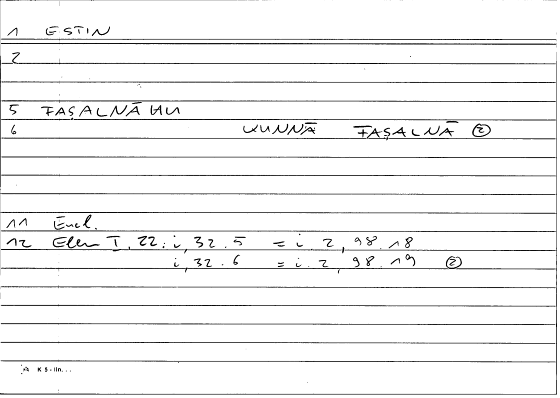 1 ESTIN
2
5 FAṢALNĀHU
6 KUNNĀ FAṢALNĀ ②
11 Eucl.
12 Elem I, 22: i, 32.5 = i. 2, 98.18
i, 32.6 = i. 2, 98.19 ②